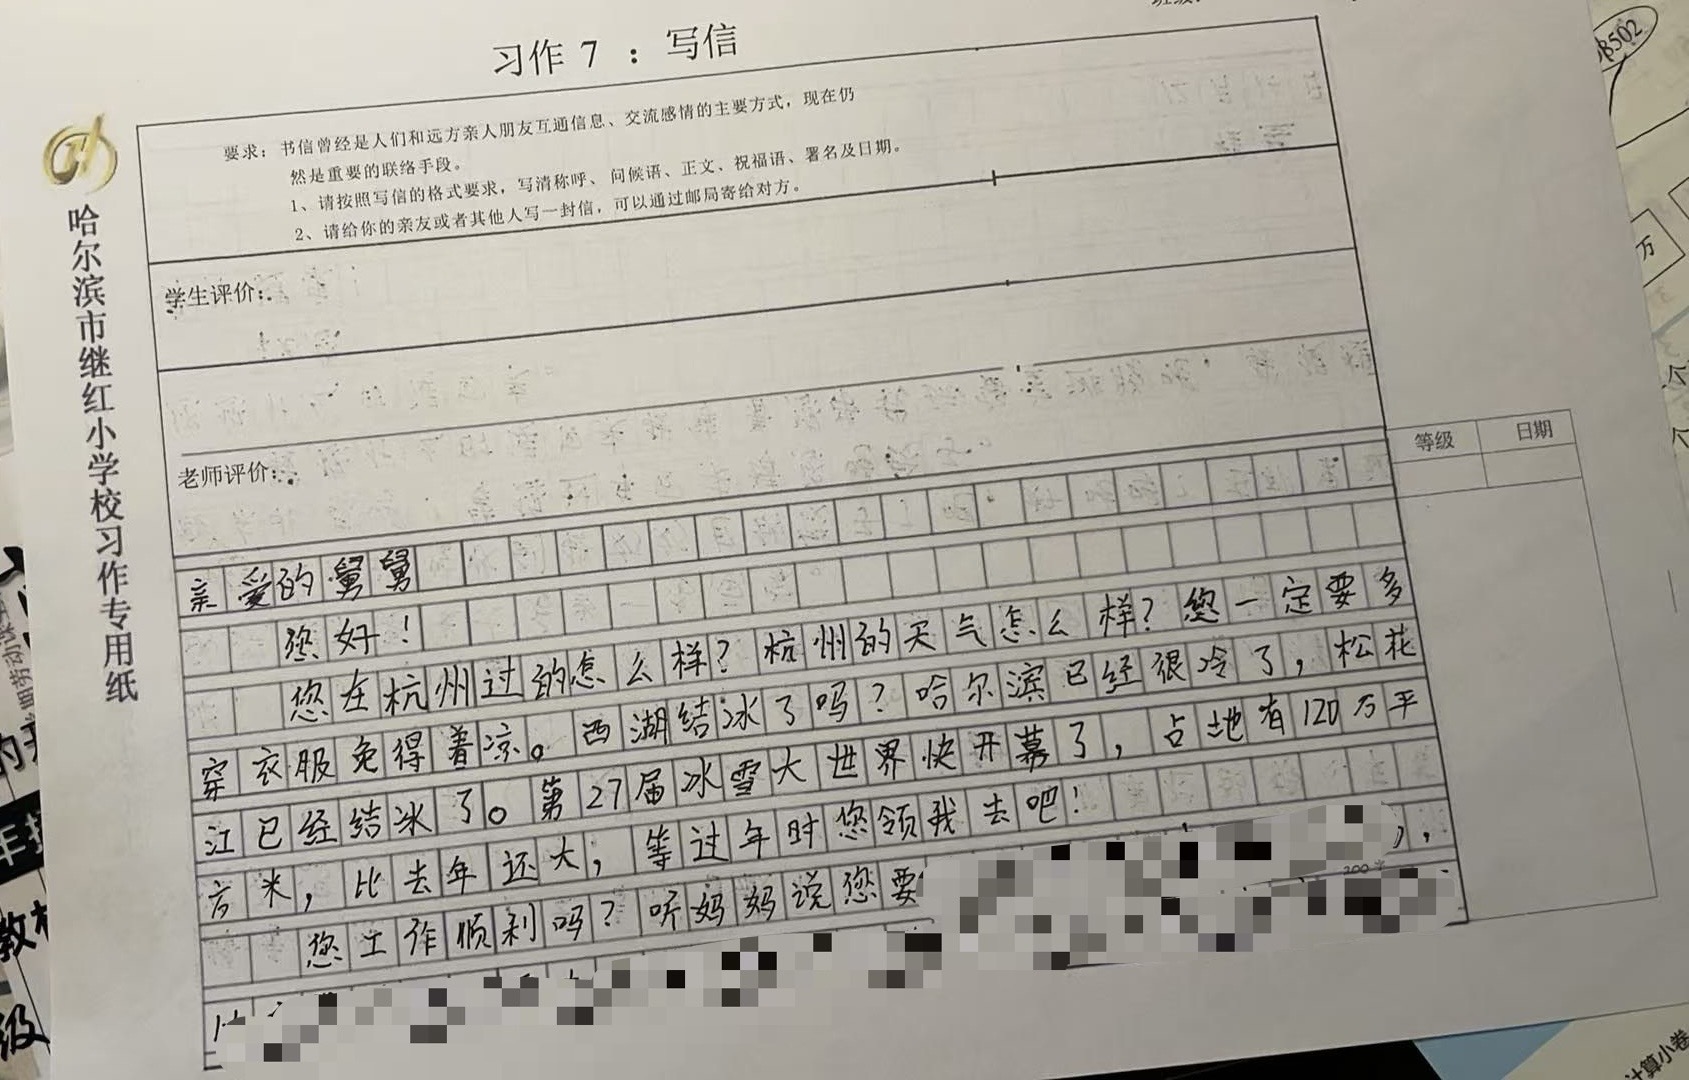 习作 7 ：写信
要求：书信曾经是人们和远方亲人朋友互通信息、交流感情的主要方式，现在仍
然是重要的联络手段。
1、请按照写信的格式要求，写清称呼、问候语、正文、祝福语、署名及日期。
2、请给你的亲友或者其他人写一封信，可以通过邮局寄给对方。
哈尔滨市继红小学校习作专用纸
学生评价：
老师评价：
等级 日期
亲爱的舅舅
您好！
您在杭州过的怎么样？杭州的天气怎么样？您一定要多
穿衣服免得着凉。西湖结冰了吗？哈尔滨已经很冷了，松花
江已经结冰了。第27届冰雪大世界快开幕了，占地有120万平
方米，比去年还大，等过年时您领我去吧！
您工作顺利吗？听妈妈说您要
8502
万
计算小卷